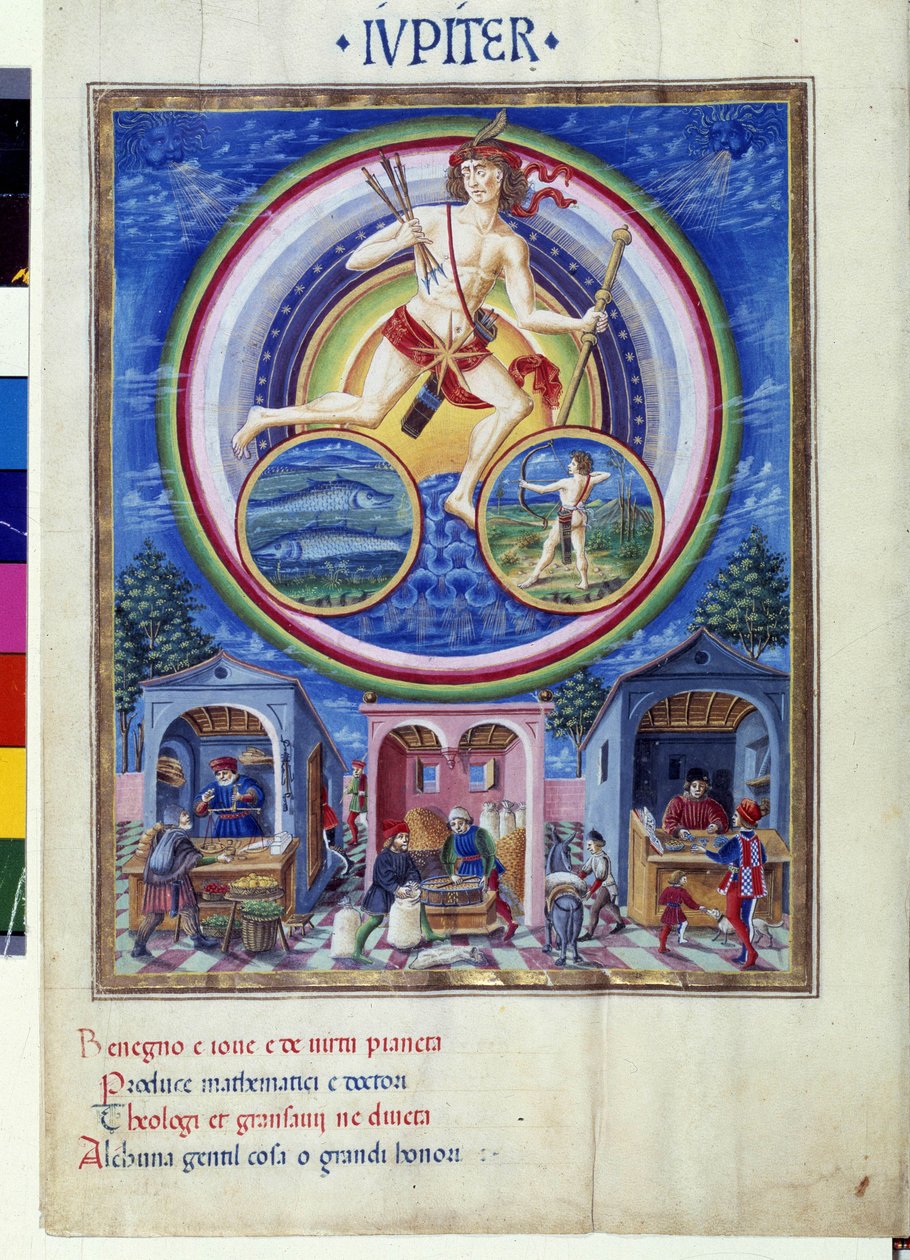 IVPITER
Benegno e ioue e de uirtu pianeta
Produce mathematici e doctori
Theologi et gransauij ne diueta
Alchuna gentil cosa o grandi honori